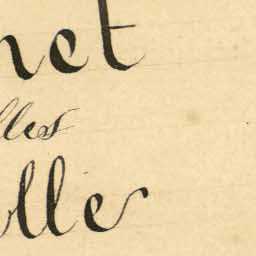 net
lles
lle